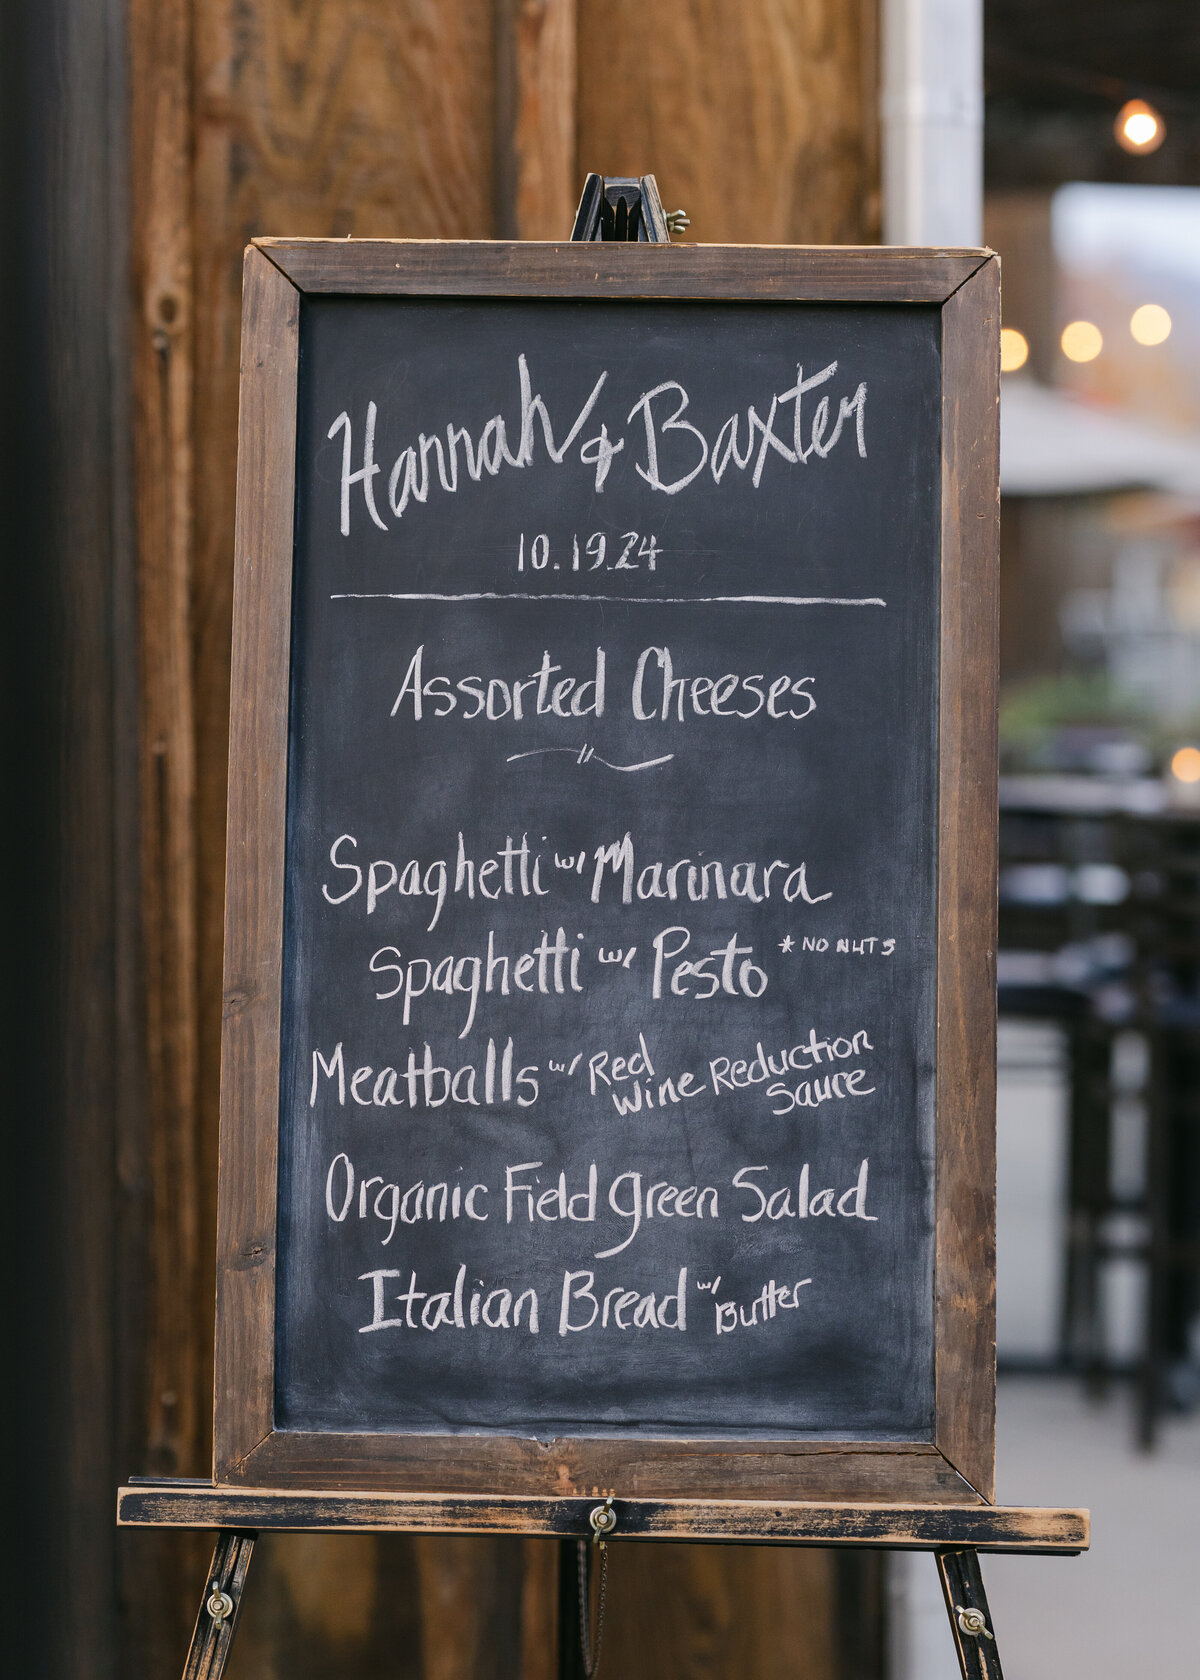 Hannah & Baxter
10.19.24
Assorted Cheeses
Spaghetti w/ Marinara
Spaghetti w/ Pesto *NO NUTS
Meatballs w/ Red Wine Reduction Sauce
Organic Field Green Salad
Italian Bread w/ Butter